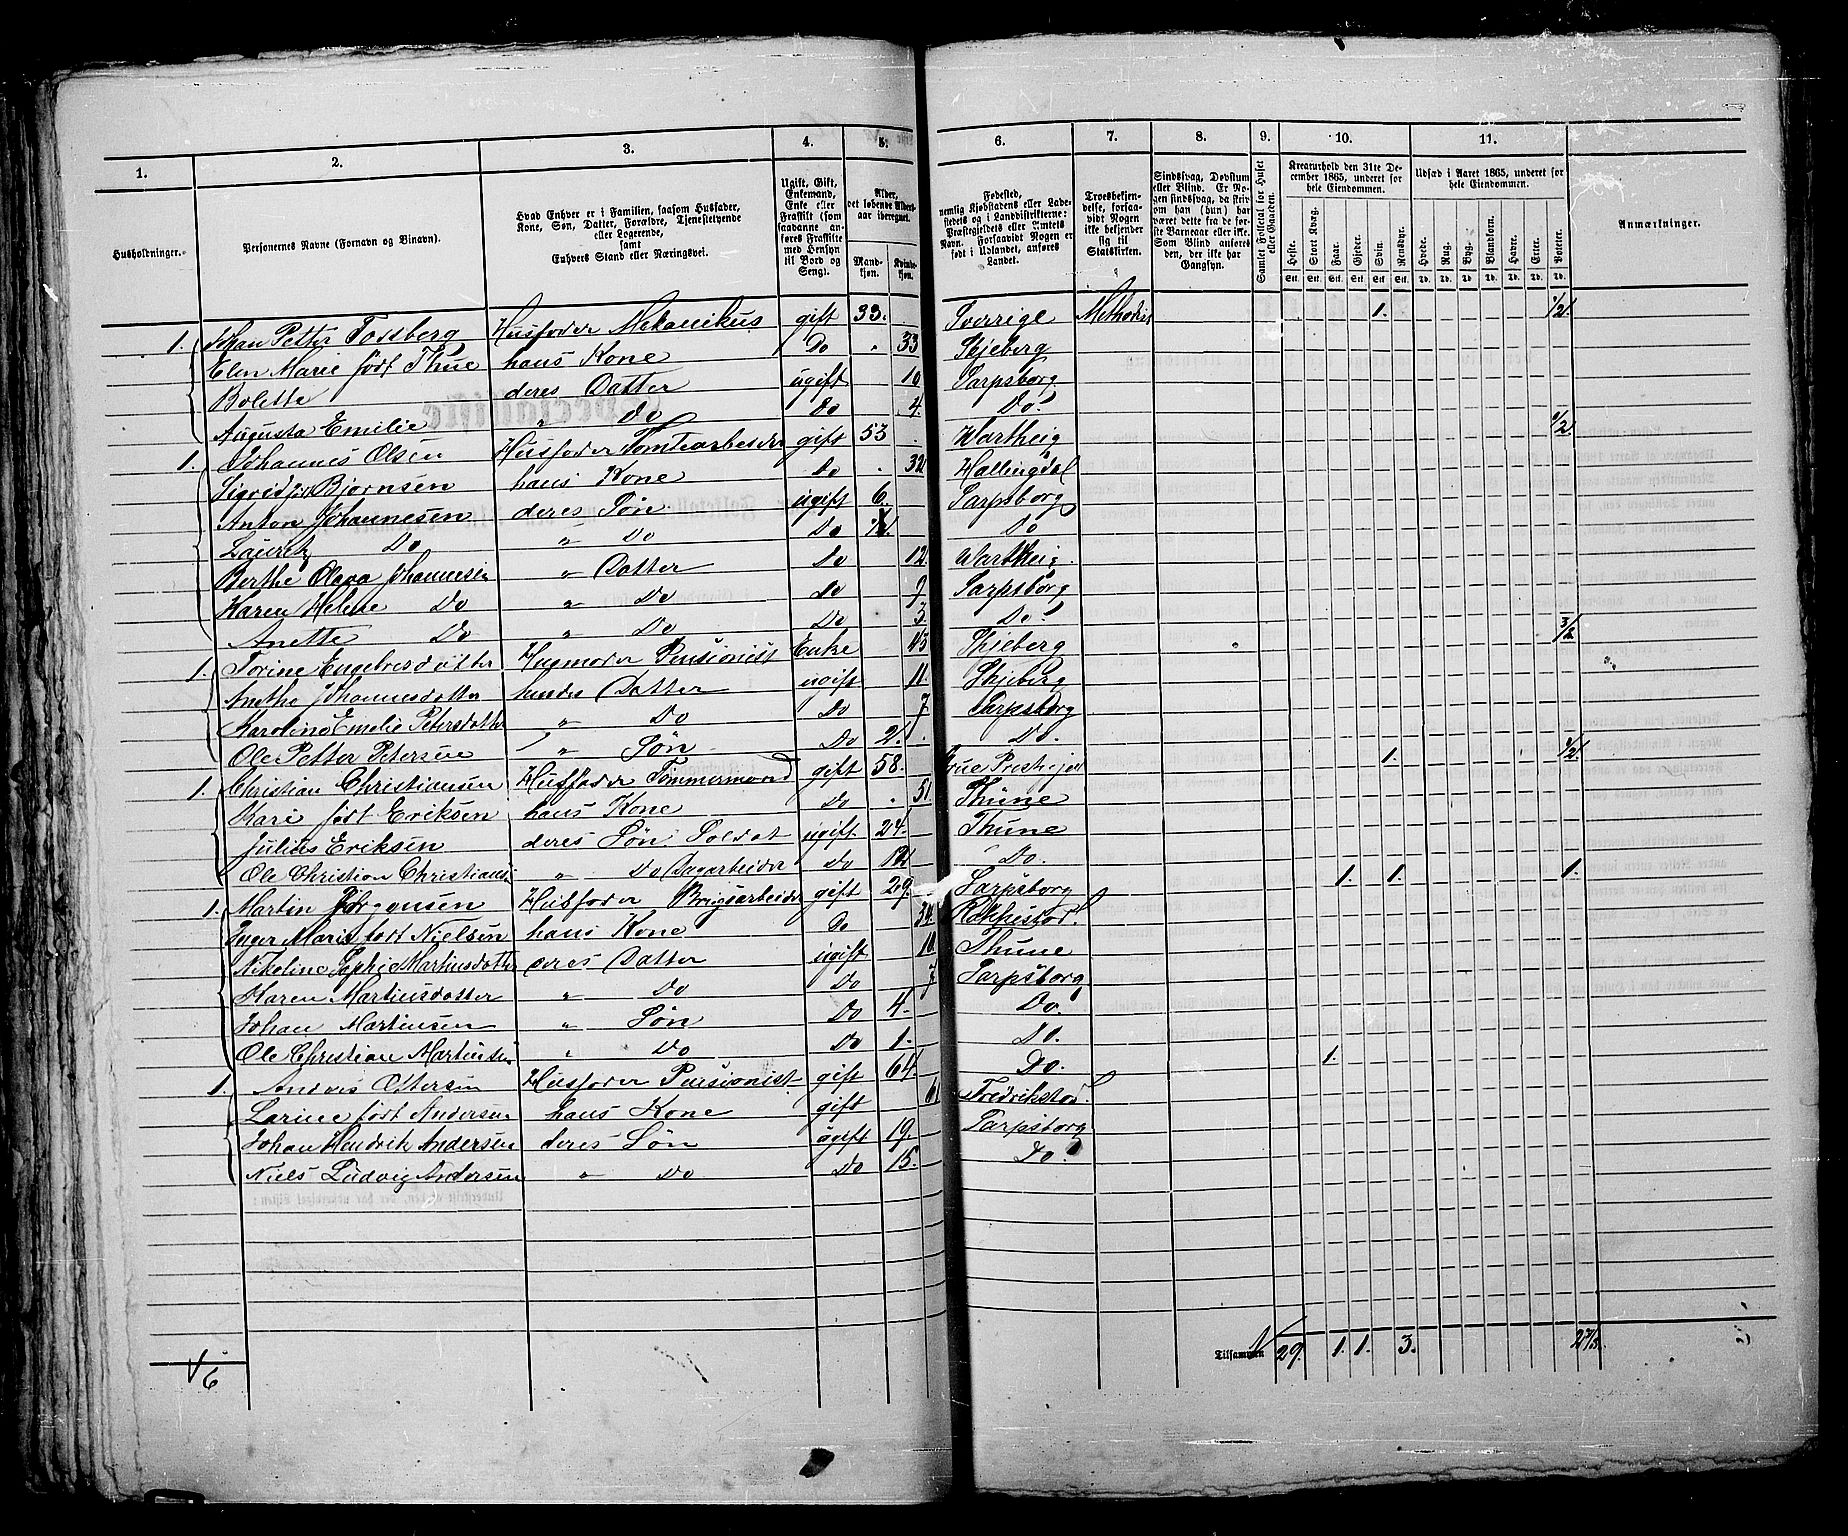 1. 2. 3. 4. 5. 6. 7. 8. 9. 10. 11.
Husholdninger.
Personernes Navne (Fornavn og Binavn).
Hvad Enhver er i Familien, saasom Husfader, Kone, Søn, Datter, Forældre, Tjenestetyende eller Logerende, samt Enhvers Stand eller Næringsvei.
Ugift, Gift, Enkemand, Enke eller Fraskilt (som saadanne anføres Fraskilte med Hensyn til Bord og Seng).
Alder, det løbende Alders-aar iberegnet.
Mand-kjøn. Kvinde-kjøn.
Fødested, nemlig Kjøbstadens eller Ladestedets og i Landdistrikterne: Præstegjeldets eller Amtets Navn. Forsaavidt Nogen er født i Udlandet, anføres Landet.
Troesbekjendelse, forsaavidt Nogen ikke bekjender sig til Statskirken.
Sindssvag, Døvstum eller Blind. Er Nogen sindssvag, da skrives om han (hun) har været dette fra de første Barneaar eller ikke. Som Blind anføres den, der ikke har Gangsyn.
Samlet Folketal for Huset eller Gaarden.
Kreaturhold den 31te December 1865, underet for hele Eiendommen.
Heste. Stort Kvæg. Faar. Gjeder. Svin. Rensdyr.
Udsæd i Aaret 1865, underet for hele Eiendommen.
Hvede. Rug. Byg. Blandkorn. Havre. Erter. Poteter.
Anmærkninger.
1. Johan Petter Forsberg Husfader Mekanikus gift 33. Sverrige Methodist 1. 1/2
Elen Marie født Thue hans Kone Do " 33 Skjeberg
Bolette deres Datter ugift 10 Sarpsborg
Augusta Emilie " Do Do 4. Do.
1. Johannes Olsen Husfader Tomtearbeider gift 53 Wartheig 1/2
Sigrid født Bjørnsen hans Kone Do " 32 Hallingdal
Anton Johannesen deres Søn ugift 6. Sarpsborg
Lauritz Do " Do Do Do
Berthe Olava Johannesen " Datter Do 12 Wartheig
Karen Helene Do " Do Do 9 Sarpsborg
Anette Do " Do Do 3 Do.
1. Torine Engebresdatter Husmoder Pensionist Enke Skjeberg
Anethe Johannesdatter hendes Datter ugift 11. Skjeberg
Karoline Emelie Petersdatter " Do Do 7 Sarpsborg
Ole Petter Petersen " Søn Do 2. Do.
1. Christian Christiansen Husfader Tømmermand gift 58. 1. 1/2
Kari født Eriksen hans Kone Do " 51 Thune
Julius Eriksen deres Søn Soldat ugift 24. Thune
Ole Christian Christiansen " Do Dagarbeider Do Do.
1. Martin Jørgensen Husfader Brugsarbeider gift 29. Sarpsborg 1. 1. 1.
Inger Marie født Nielsen hans Kone Do 34. Rakkestad
Nikoline Sophie Martinsdatter deres Datter ugift 10 Thune
Karen Martinsdatter " Do Do 7 Sarpsborg
Johan Martinsen " Søn Do 4. Do.
Ole Christian Martinsen " Do Do 1. Do.
1. Andreas Ottersen Husfader Pensionist gift 64. Do. 1.
Larine født Andersen hans Kone gift 61 Fredrikstad
Johan Hendrik Andersen deres Søn ugift 19. Sarpsborg
Niels Ludvig Andersen " Do Do 15. Do.
6
Tilsammen 29. 1. 1. 3.